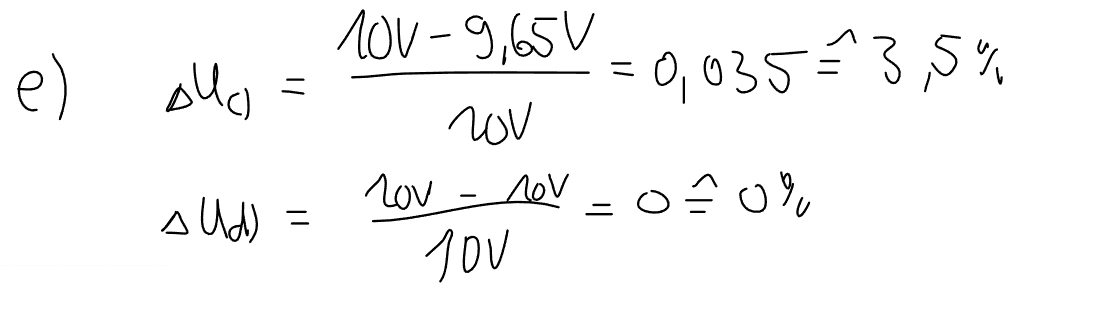 e) ΔU_c) = (10V - 9,65V) / 10V = 0,035 ≙ 3,5%
ΔU_d) = (10V - 10V) / 10V = 0 ≙ 0%